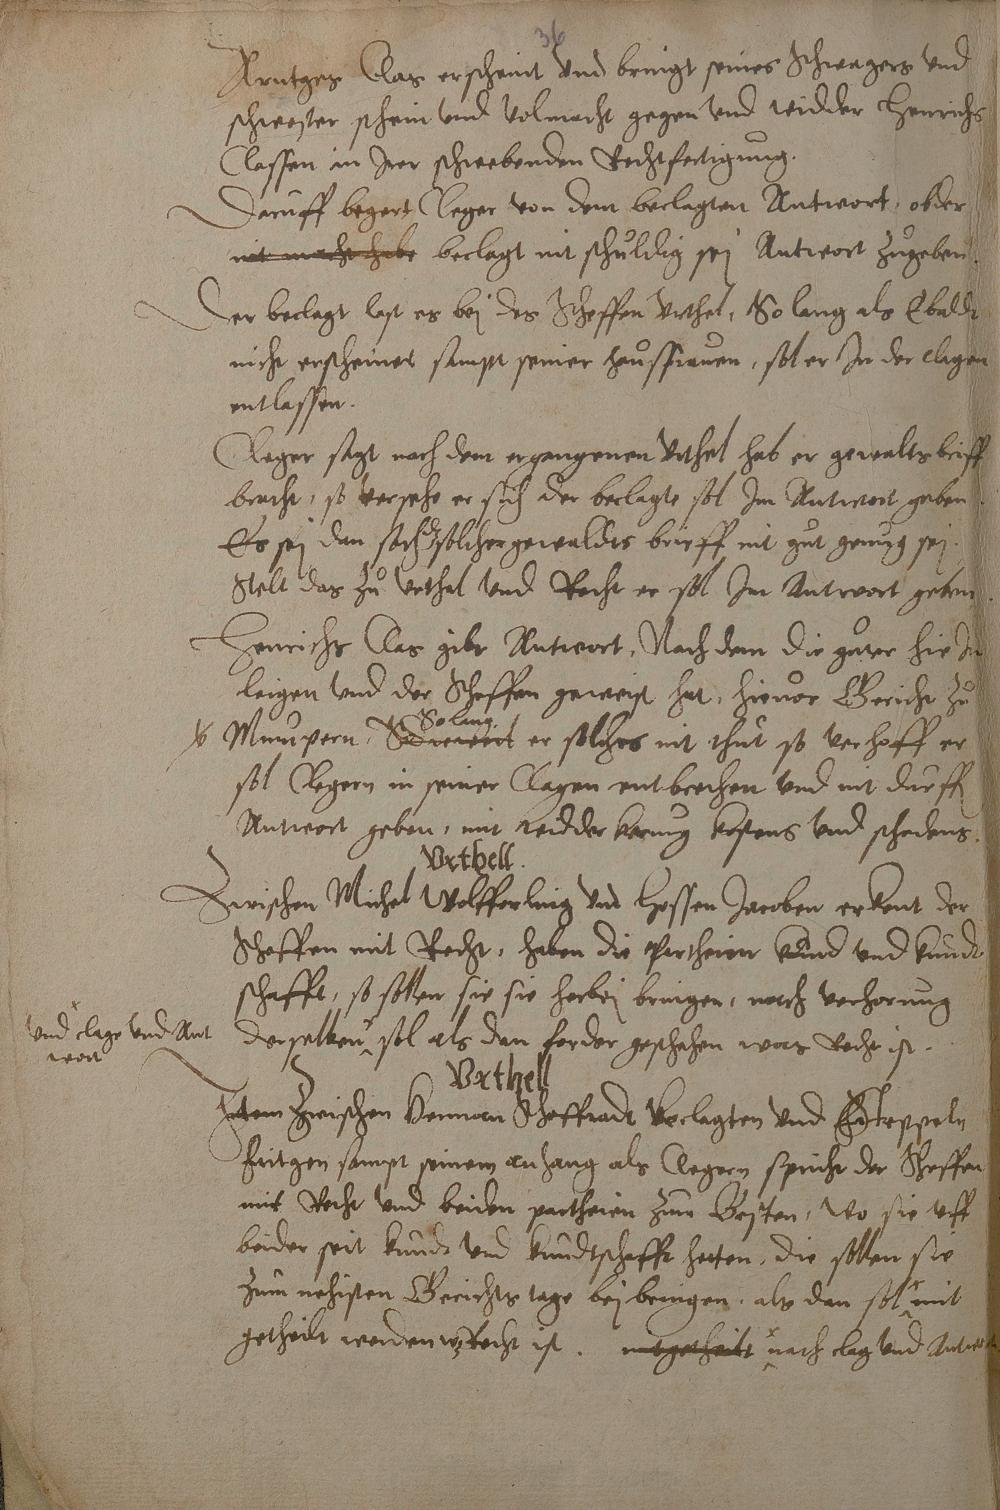 36
Arntges Clas erscheint und bringt seines Schwagers und
schwester schein und volmacht gegen und widder Henrichs
Classen in Irer schwebenden Rechtfertigung.
Daruff begert Cleger von dem beclagten Antwort, ob der
nit macht habe beclagt nit schuldig sej Antwort zugeben.
Der beclagt last es bej des Scheffen Urthel, So lang als Ebaldt
nicht erscheinet sampt seiner haussfrauwen, sol er In der clagen
entlassen.
Cleger sagt nach dem ergangenen Urthel hab er gewaltsbriff
bracht, so versehe er sich der beclagte sol Im Antwort geben
Es sej dan sach dz solcher gewaldts brieff nit gut genug sej.
Stelt das zu Urthel und Recht er sol Im Antwort geben.
Henrichs Clas gibt Antwort, Nach dem die guter hie In
leigen und der Scheffen geweist hat, hievor Gericht zu
So lang
er solches nit thut so verhoff er
sol Clegern in seiner Clagen entbrechen und nit durff
Antwort geben, mit widder kerung kostens und schadens.
Urthell.
Zwischen Michel Wolfferling und Hossen Jacoben erkent der
Scheffen mit Recht, haben die Partheien kund und kundt
schafft, so sollen sie sie herbej bringen, nach verhorung
und clage und Ant
wort
derselben sol als dan ferder geschehen was Recht ist.
Urthell
Item Zwischen Herman Scheffradt Beclagten und
Fritzen sampt seinem anhang als Clegern spricht der Scheffen
mit Recht und beiden partheien zum Besten, Wo sie uff
beider seit kundt und kundtschafft hetten, die sollen sie
zum nehisten Gerichts tage beibringen, als dan sol mit
getheilt werden wz Recht ist. mitgetheilt nach clag und Antwort